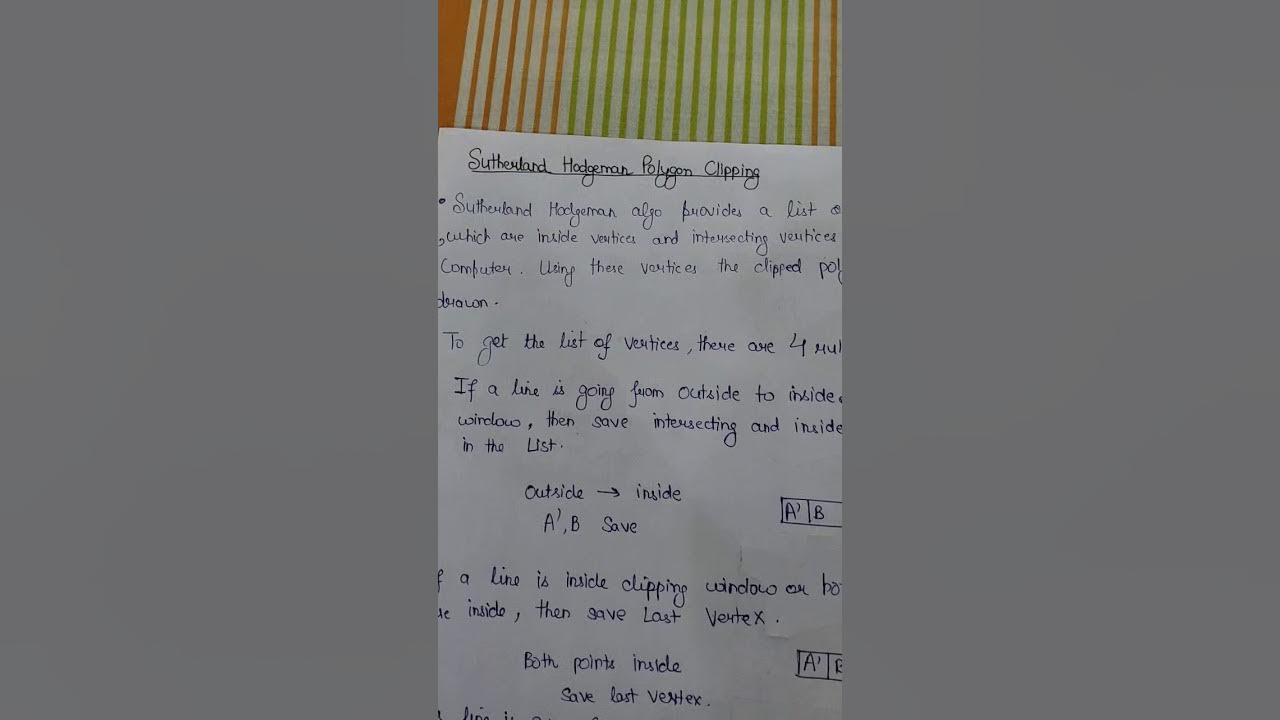 Sutherland Hodgeman Polygon Clipping
• Sutherland Hodgeman algo provides a list
, which are inside vertices and intersecting vertices
Computer. Using these vertices the clipped pol
drawn.
To get the list of vertices, there are 4 rul
If a line is going from outside to inside
window, then save intersecting and inside
in the List.
Outside → inside
A', B Save
A' B
f a line is inside clipping window or bo
re inside, then save Last Vertex.
Both points inside
Save last vertex.
A' B
line is